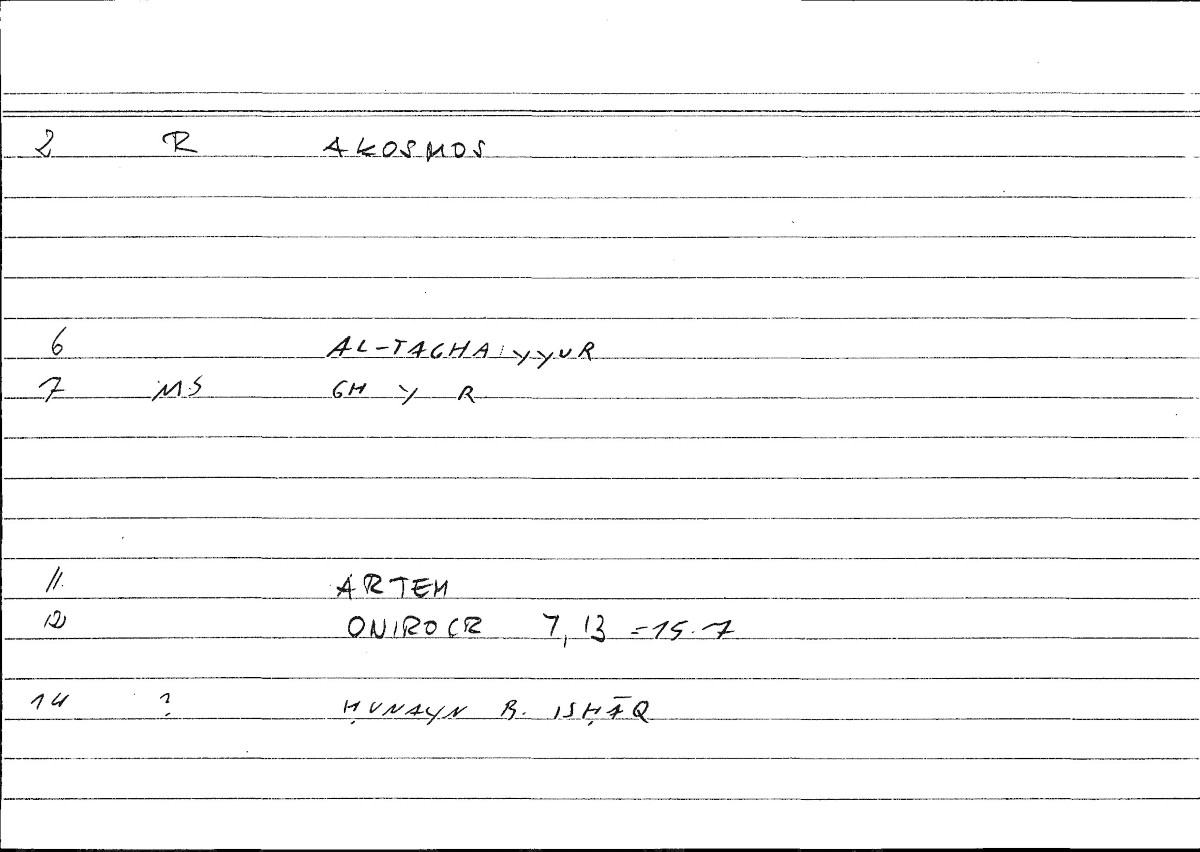 2 R AKOSMOS
6 AL-TAGHAIYYUR
7 MS GH Y R
11. ARTEM
12 ONIROCR 7, 13 = 15.7
14 ? ḤUNAYN B. ISḤĀQ